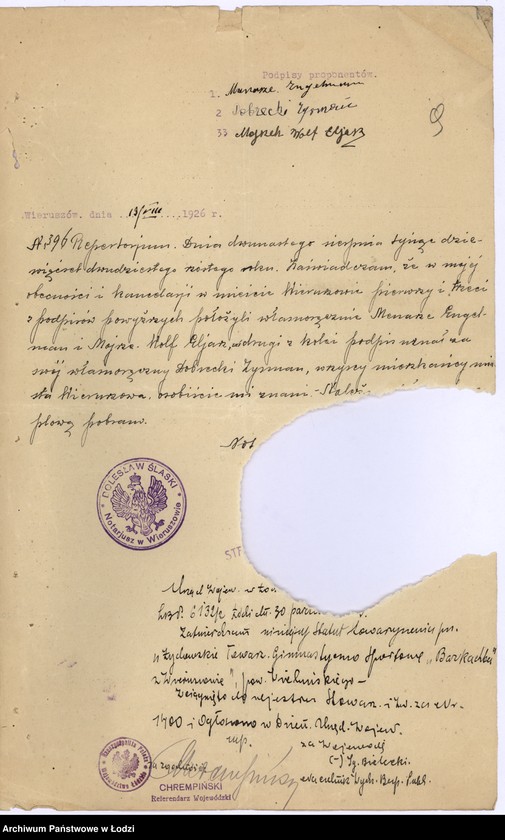 Podpisy proponentów.
1. Manasze Engelmann
2 Dobrecki Zysman
33 Mojzek Wolf Eljasz
Wieruszów, dnia 13/VIII 1926 r.
№ 396 Repertorjum. Dnia dwunastego sierpnia tysiąc dzie-
więćset dwudziestego szóstego roku. Zaświadczam, że w mojej
obecności i kancelarji w mieście Wieruszowie pierwszy i trzeci
z podpisów powyższych położyli własnoręcznie Manasze Engel-
man i Mojze Wolf Eljasz, a drugi z kolei podpis uznał za
swój własnoręczny Dobrecki Zysman, wszyscy mieszkańcy mia-
sta Wieruszowa, osobiście mi znani.
płową pobrano.
Not
BOLESŁAW ŚLĄSKI
Notarjusz w Wieruszowie
Urząd Wojew. w
Łódź dn. 30
Zatwierdzam niniejszy Statut Stowarzyszenia pn.
"Żydowskie Towarz. Gimnastyczno Sportowe "Barkochba"
z Wieruszowie", pow. Wieluńskiego -
Wciągnięto do rejestru Stowarz. i Zw. za Nr.
1400 i Ogłoszono w Dzien. Urzęd. Wojew.
za Wojewodę
(-) Iz. Bielecki
Za zgodność
CHREMPIŃSKI
Referendarz Wojewódzki
Rzeczpospolita Polska
Archiwum Państwowe w Łodzi